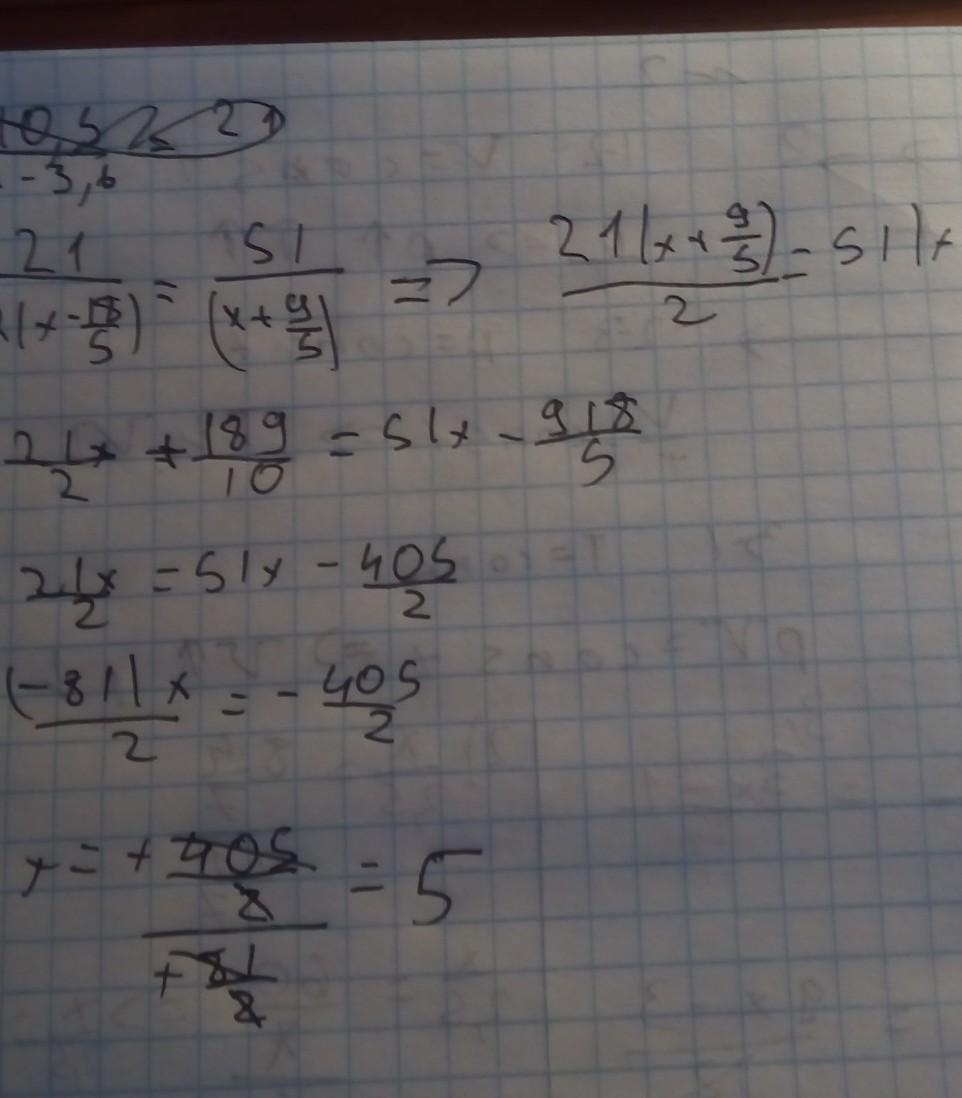 -3,6
21/(x-18/5) = 51/(x+9/5) => 21(x+9/5)/2 = 51(x
21x/2 + 189/10 = 51x - 918/5
21x/2 = 51x - 405/2
(-81)x/2 = -405/2
x = +405/2 / +81/2 = 5